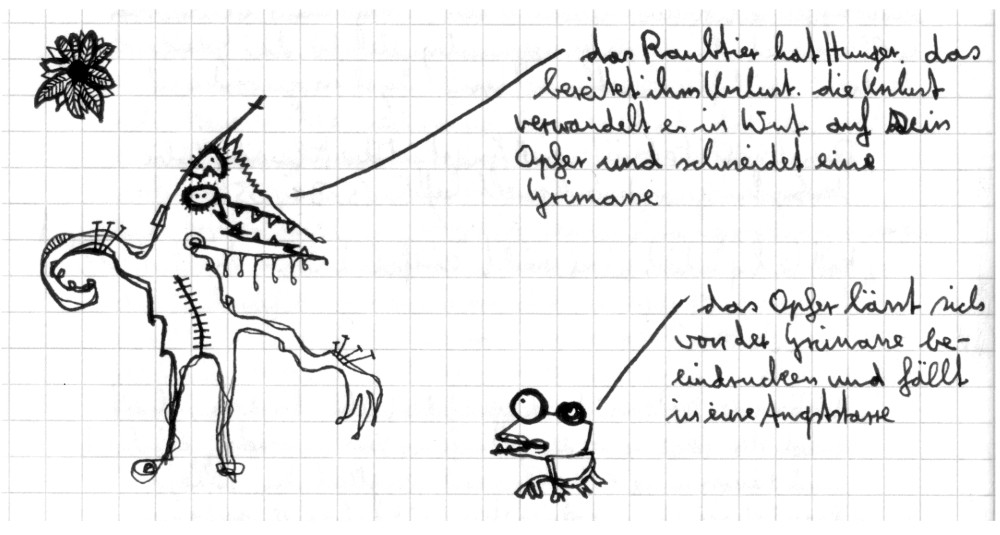 das Raubtier hat Hunger. das
bereitet ihm Unlust. die Unlust
verwandelt er in Wut auf Dein
Opfer und schneidet eine
Grimasse
das Opfer lässt sich
von der Grimasse be-
eindrucken und fällt
in eine Angststarre